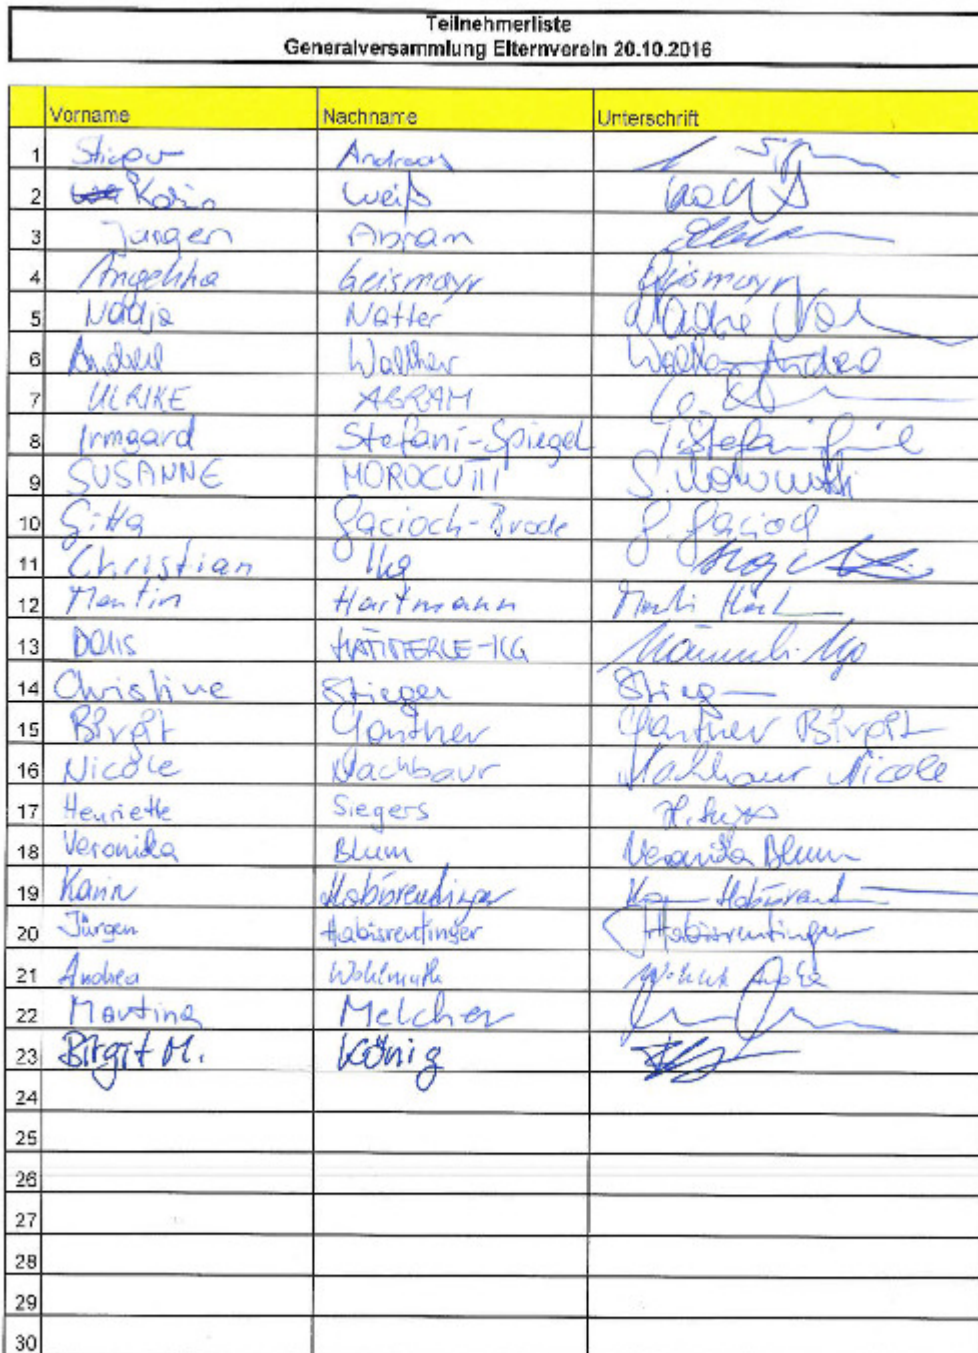 Teilnehmerliste
Generalversammlung Elternverein 20.10.2016
Vorname Nachname Unterschrift
1 Stieger Andreas
2 Karin Weiß
3 Jürgen Abram
4 Angelika Geismayr Geismayr
5 Nadja Natter Nadja
6 Walther Walther
7 ULRIKE ABRAM
8 Irmgard Stefani-Spiegel I. Stefani
9 SUSANNE MOROCUTTI S. Morocutti
10 Gitta Gacioch-Brode G. Gacioch
11 Christian Ilg
12 Martin Hartmann
13 DORIS HÄMMERLE-ILG
14 Christine Stieger Stieg
15 Birgit Gantner Gantner Birgit
16 Nicole Nachbaur Nachbaur Nicole
17 Henriette Siegers
18 Veronika Blum Veronika Blum
19 Karin Habisreutinger
20 Jürgen Habisreutinger Habisreutinger
21 Andrea Wohlmuth
22 Martina Melcher
23 Birgit M. König
24
25
26
27
28
29
30